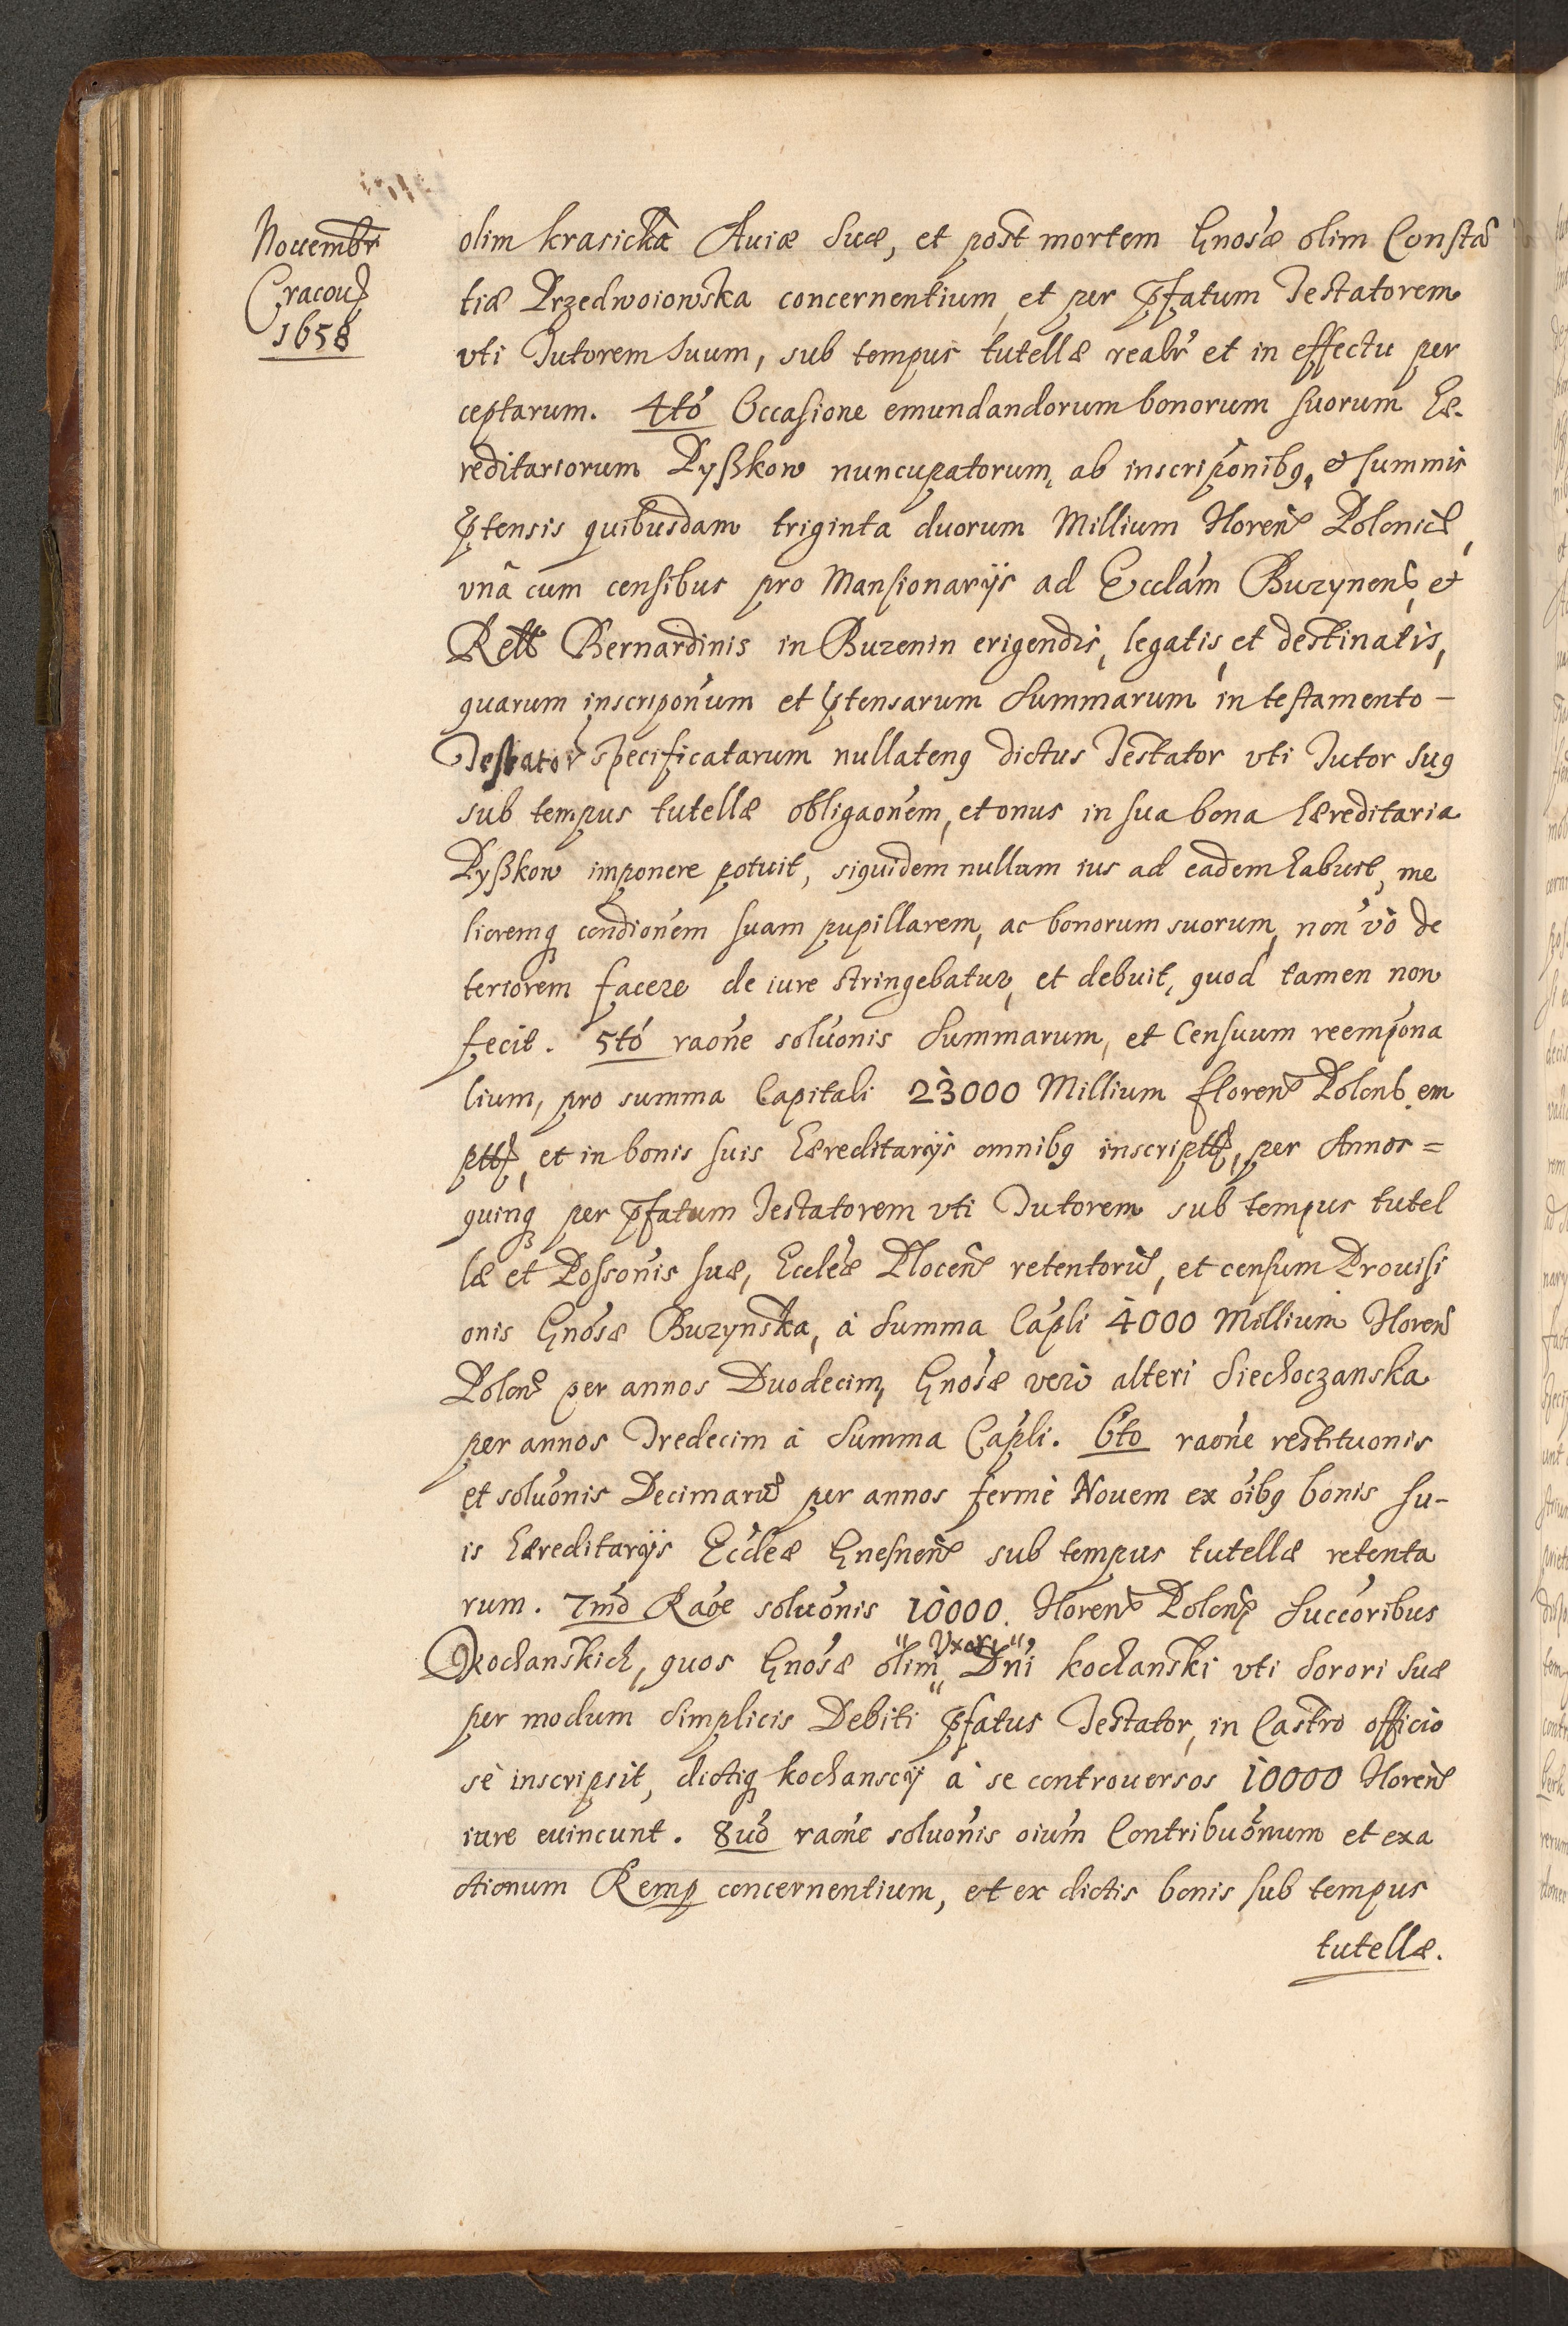 Nouembr
Cracou
1658
olim krasicka Auiæ Suæ, et post mortem Gnosæ olim Constã
tiæ Przedwoiowska concernentium, et per p̃fatum Testatorem
vti Tutorem Suum, sub tempus tutellæ realr et in effectu per
ceptarum. 4tó Occasione emundandorum bonorum suorum Hæ-
reditariorum Pyßkow nuncupatorum, ab inscriponibq, et summis
p̃tensis quibusdam triginta duorum Millium Floren Polonic,
vnâ cum censibus pro Mansionarijs ad Ecclam Buzynens, et
Relt Bernardinis in Buzenin erigendis, legatis, et destinatis,
quarum inscriponum et p̃tensarum Summarum in testamento –
Testator specificatarum nullatenq dictus Testator vti Tutor suq
sub tempus tutellæ obligaonem, et onus in sua bona hæreditaria
Pyßkow imponere potuit, siquidem nullum ius ad eadem habuit, me
lioremq condionem suam pupillarem, ac bonorum suorum, non vo de
teriorem facere de iure stringebatur, et debuit, quod tamen non
fecit. 5tó raone soluonis Summarum, et Censuum reempona
lium, pro summa Capitali 23000 Millium floren Polons em
ptt, et in bonis suis hæreditarijs omnibq inscriptt, per Annos =
quinq per p̃fatum Testatorem vti Tutorem sub tempus tutel
læ et Possonis suæ, Eccleæ Plocen retentoru, et censum Prouisi
onis Gnosæ Buzynska, à Summa Capli 4000 Millium Floren
Polon per annos Duodecim, Gnosæ verò alteri Siechoczanska
per annos Tredecim à Summa Capli. 6to raone restituonis
et soluonis Decimaru per annos fermè Nouem ex oibq bonis su-
is hæreditarijs Eccleæ Gnesnen sub tempus tutellæ retenta
rum. 7mò Raoe soluonis 10000. Floren Polon Succoribus
Kochanskich, quos Gnosæ olim " Vxori " Dni kochanski vti Sorori suæ
per modum Simplicis Debiti p̃fatus Testator, in Castro officio
sè inscripsit, dictiq kochanscij à se controuersos 10000 Floren
iure euincunt. 8uò raone soluonis oium Contribuonum et exa
ctionum Remp concernentium, et ex dictis bonis sub tempus
tutellæ.